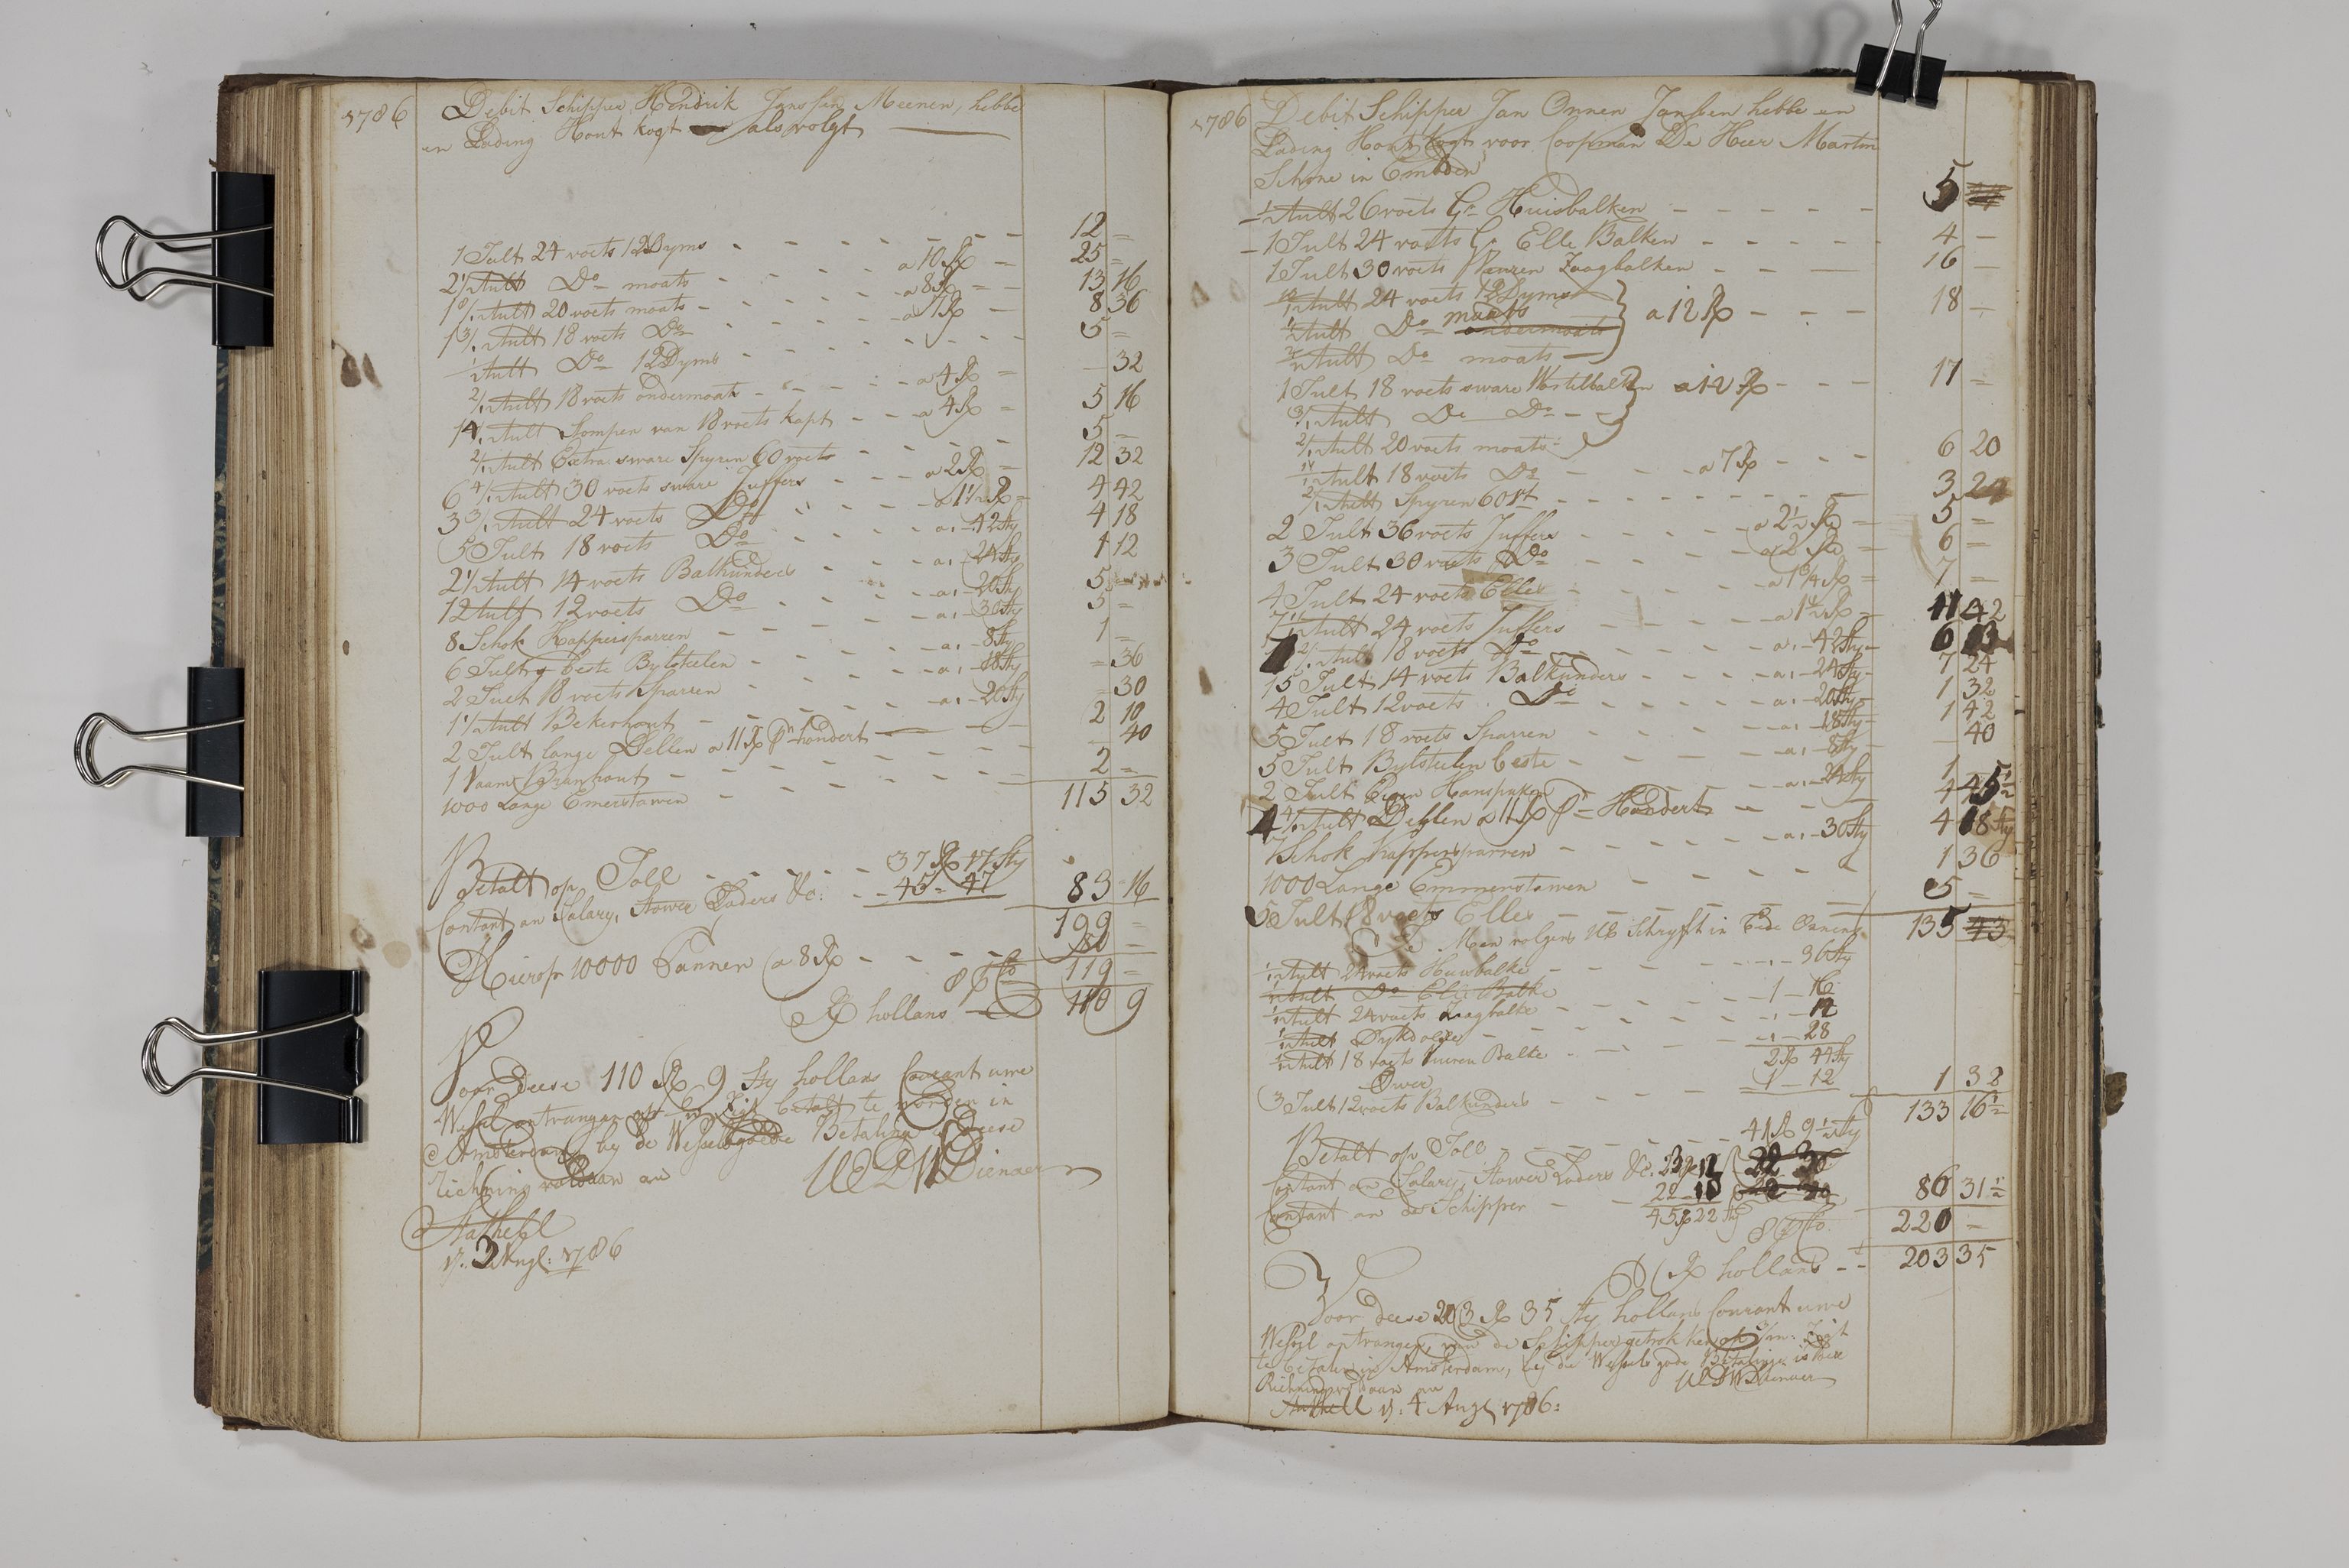 1786
Debit Schipper Hendrik Janssen Meenen, hebbe
en Lading Hout kogt als volgt
1 Tult 24 voets 12 Dyms - - - - 12 =
2 1/2 Tult Do moats - - - a 10 R = 25 =
1 8/12 Tult 20 voets moats - - - a 8 R = 13 16
1 3/12 Tult 18 voets Do - - - a 7 R - 8 36
1/2 Tult Do 12 Dyms - - - 5 =
2/12 Tult 18 voets ondermoats - - - a 4 R = - 32
1 4/12 Tult Stompen van 18 voets kapt - - a 4 R = 5 16
2/12 Tult Extra sware Spyren 60 voets - - - 5 -
6 4/12 Tult 30 voets sware Juffers - - - a 2 R = 12 32
3 3/12 Tult 24 voets Do - - - a 1 1/2 R = 4 42
5 Tult 18 voets Do - - - a, - 42 sty 4 18
2 1/2 Tult 14 voets Balkunders - - - a, - 24 sty 1 12
12 Tult 12 voets Do - - - a, - 20 sty 5 -
8 Schok Kappersparren - - - a, - 30 sty 5 =
6 Tult beste Bylstelen - - - a, - 8 sty 1 =
2 Tult 18 voets Sparren - - - a, - 18 sty = 36
1 1/2 Tult Bekerhout - - - a, - 20 sty - 30
2 Tult lange Dellen a 11 R pr hondert - 2 10
1 Vaam Branhout - - - - 40
1000 Lange Emerstawen - - - 2 =
115 32
Betalt op Toll - - - 37 R 17 sty
Contant an Salary, Stower Laders &c: - - 45 - 47 83 16
199 =
Hierop 10000 Pannen a 8 R - - - 80 -
119 =
8 pCto
R hollans 110 9
Voor deese 110 R 9 sty hollans Courant uwe
Wessel ontvangen op Zigt betalt te worden in
Amsterdam, by de Wessels goede Betaling is deese
Riekning voldaan an UEDW Dienaer
Stathell
D. 3 Augl: 1786
1786
Debit Schipper Jan Onnen Janssen hebbe en
Lading Hout kogt voor Coopman De Heer Martin
Schone in Embden
1/2 Tult 26 voets Gr Huisbalken - - - - - 5
1 Tult 24 voets Gr Elle Balken - - - - 4 -
1 Tult 30 voets Vuuren Zaagbalken - - - 16 -
24 voets 12 Dyms
Tult Do moats ondermoats a 12 R - - - 18 -
Tult Do moats
1 Tult 18 voets sware Wostelbalken a 12 R - - - 17 =
3/12 Tult Do Do - -
2/12 Tult 20 voets moats
Tult 18 voets Do - - - a 7 R - - - 6 20
2/12 Tult Spyren 60 st - - - 3 24
2 Tult 36 voets Juffers - - - a 2 1/2 R = 5 =
3 Tult 30 voets Do - - - a 2 R = 6 =
4 Tult 24 voets Eller - - - a 1 3/4 R = 7 =
Tult 24 voets Juffers - - - a 1 1/2 R = 11 42
Tult 18 voets Do - - - a, - 42 sty - 6 13
15 Tult 14 voets Balkunders - - - a, - 24 sty - 7 24
4 Tult 12 voets Do - - - a, - 20 sty - 1 32
5 Tult 18 voets Sparren - - - a, - 18 sty = 1 42
5 Tult Bylstelen beste - - - a, - 8 sty - 40
2 Tult Handspaken - - - a, - 24 sty 1 -
4 4/12 Tult Dellen a 11 R pr Hondert - - 4 45 1/2
7 Schok Kappersparren - - - a, - 30 sty 4 18 sty
1000 Lange Emmerstawen - - - 1 36
5 Tult 18 voets Elles - - - 5 =
135 43
Men volgens UE Schryft in
1/12 Tult 24 voets Huusbalke - - - - , - 36 sty
Tult Do Elle Balke
1/12 Tult 24 voets Zaagbalke - - - 1 - 16
1/12 Tult Dykdoller - - - , - 12
1/12 Tult 18 voets Vueren Balke - - - , - 28
2 R 44 sty
Over 1 - 12
3 Tult 12 voets Balkunders - - - 1 32
133 16 1/2
Betalt op Toll - - - 41 R 9 1/2 sty
Contant an Salary, Stower Laders &c. 23 R 12
Contant an de Schipper - - 22 - 10
45 R 22 sty 86 31 1/2
220 -
8 pCto
R hollans - - 203 35
Voor deese 203 R 35 sty hollans Courant uwe
Wessel ontvangen, van de Schipper getrokken op Zigt
te betalen in Amsterdam, by de Wessels gode Betalinge is deese
Riekning voldaan an UEDW Dienaer
Stathell D. 4 Augl 1786: